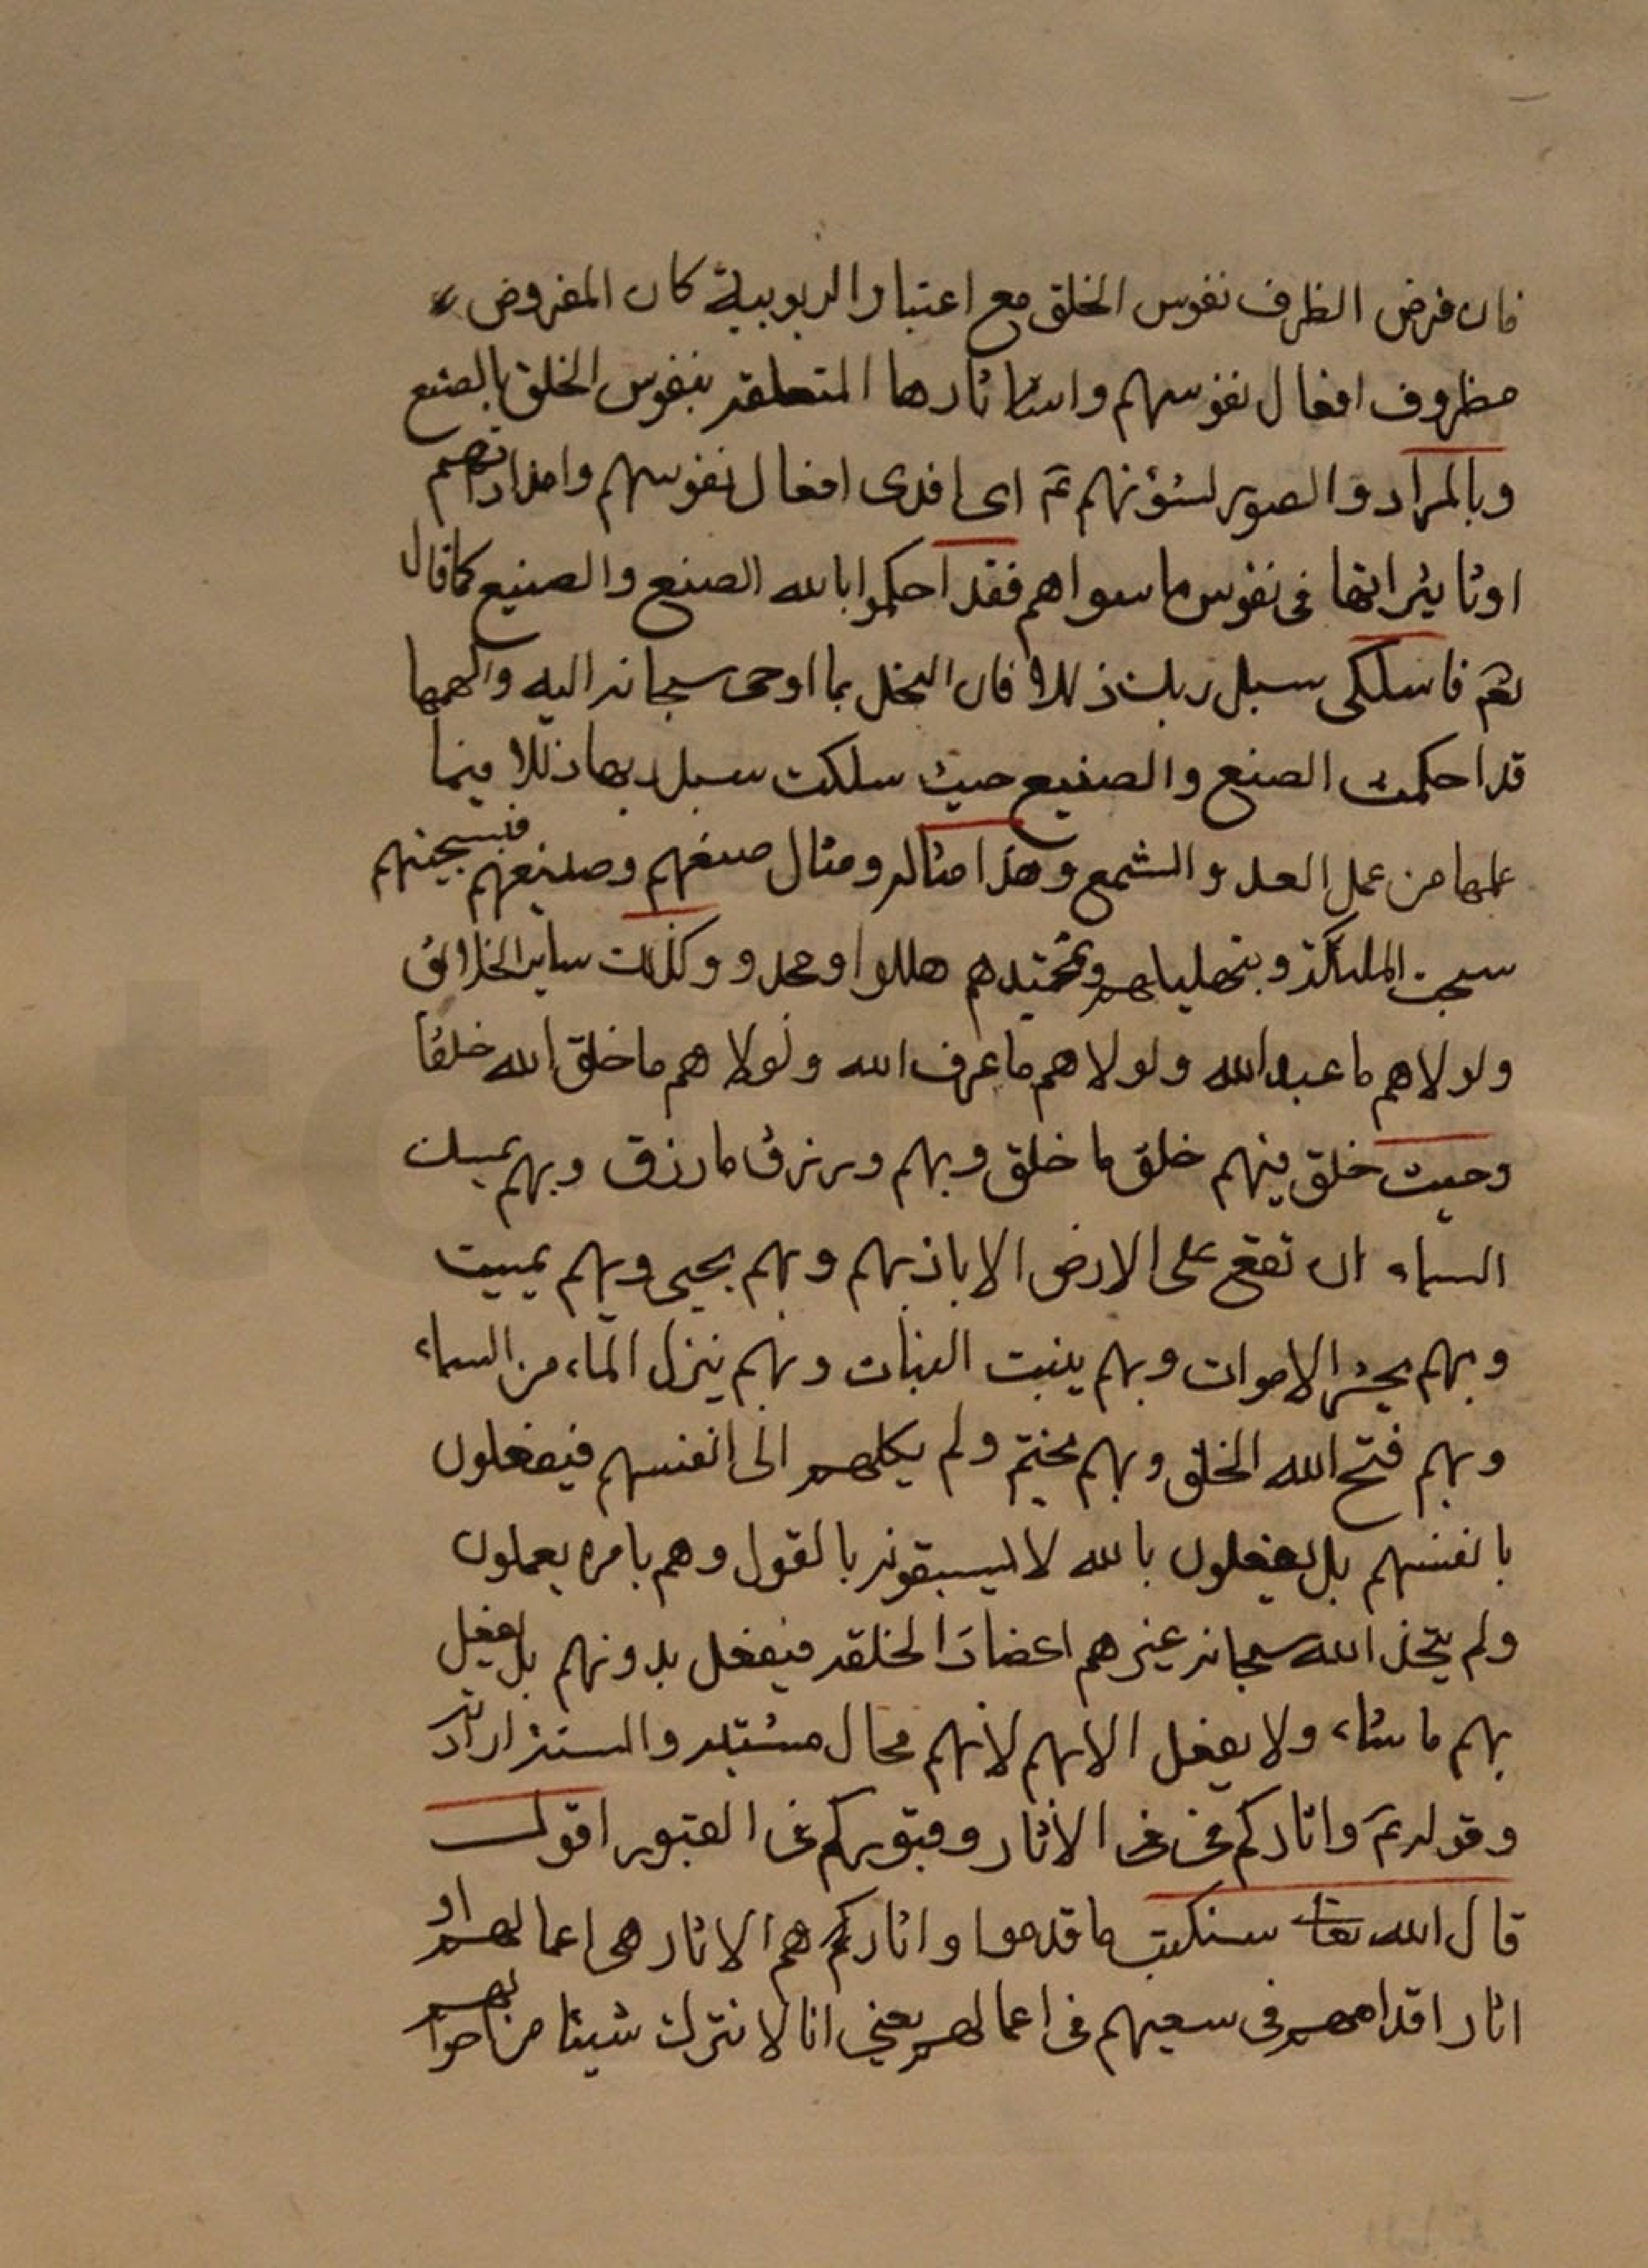 فان فرض الظرف نفوس الخلق مع اعتبار الربوبية كان المفروض
مظروف افعال نفوسهم واستاثارها المتعلقه بنفوس الخلق بالصنع
وبالمراد والصور لشؤنهم ثم اى افدى افعال نفوسهم وامداداتهم
اوتاثيراتها فى نفوس ما سواهم فقد احكموا بالله الصنع والصنيع كما قال
تعم فاسلكى سبل ربك ذللا فان النحل بما اوحى سبحانه اليه والهمها
قد احكمت الصنع والصنيع حيث سلكت سبل ربها ذللا فيما
علمها من عمل العسل والشمع وهذا مثاله ومثال صنعهم وصنيعهم فبتسبيحهم
سبحت الملئكة وبتهليلهم وتحميدهم هللوا وحمدوا وكذلك ساير الخلائق
ولولاهم ما عبد الله ولولاهم ما عرف الله ولولا هم ما خلق الله خلقا
وحيث خلق فبهم خلق ما خلق وبهم ويرزق ما رزق وبهم يمسك
السماء ان تقع على الارض الا باذنهم وبهم يحيى وبهم يميت
وبهم يحشر الاموات وبهم ينبت النبات وبهم ينزل الماء من السماء
وبهم فتح الله الخلق وبهم يختم ولم يكلهم الى انفسهم فيفعلون
بانفسهم بل يفعلون بالله لا يسبقونه بالقول وهم بامره يعملون
ولم يتخذ الله سبحانه غيرهم اعضادا لخلقه فيفعل بدونهم بل يفعل
بهم ما شاء ولا يفعل الا بهم لانهم محال مشيته والسنة ارادته
وقوله تم واثاركم فى الاثار وقبوركم فى القبور اقول
قال الله تعا سنكتب ما قدموا واثاركم هم الاثار هى اعمالهم او
اثار اقدامهم فى سعيهم فى اعمالهم يعنى انا لا نترك شيئا من احوالهم